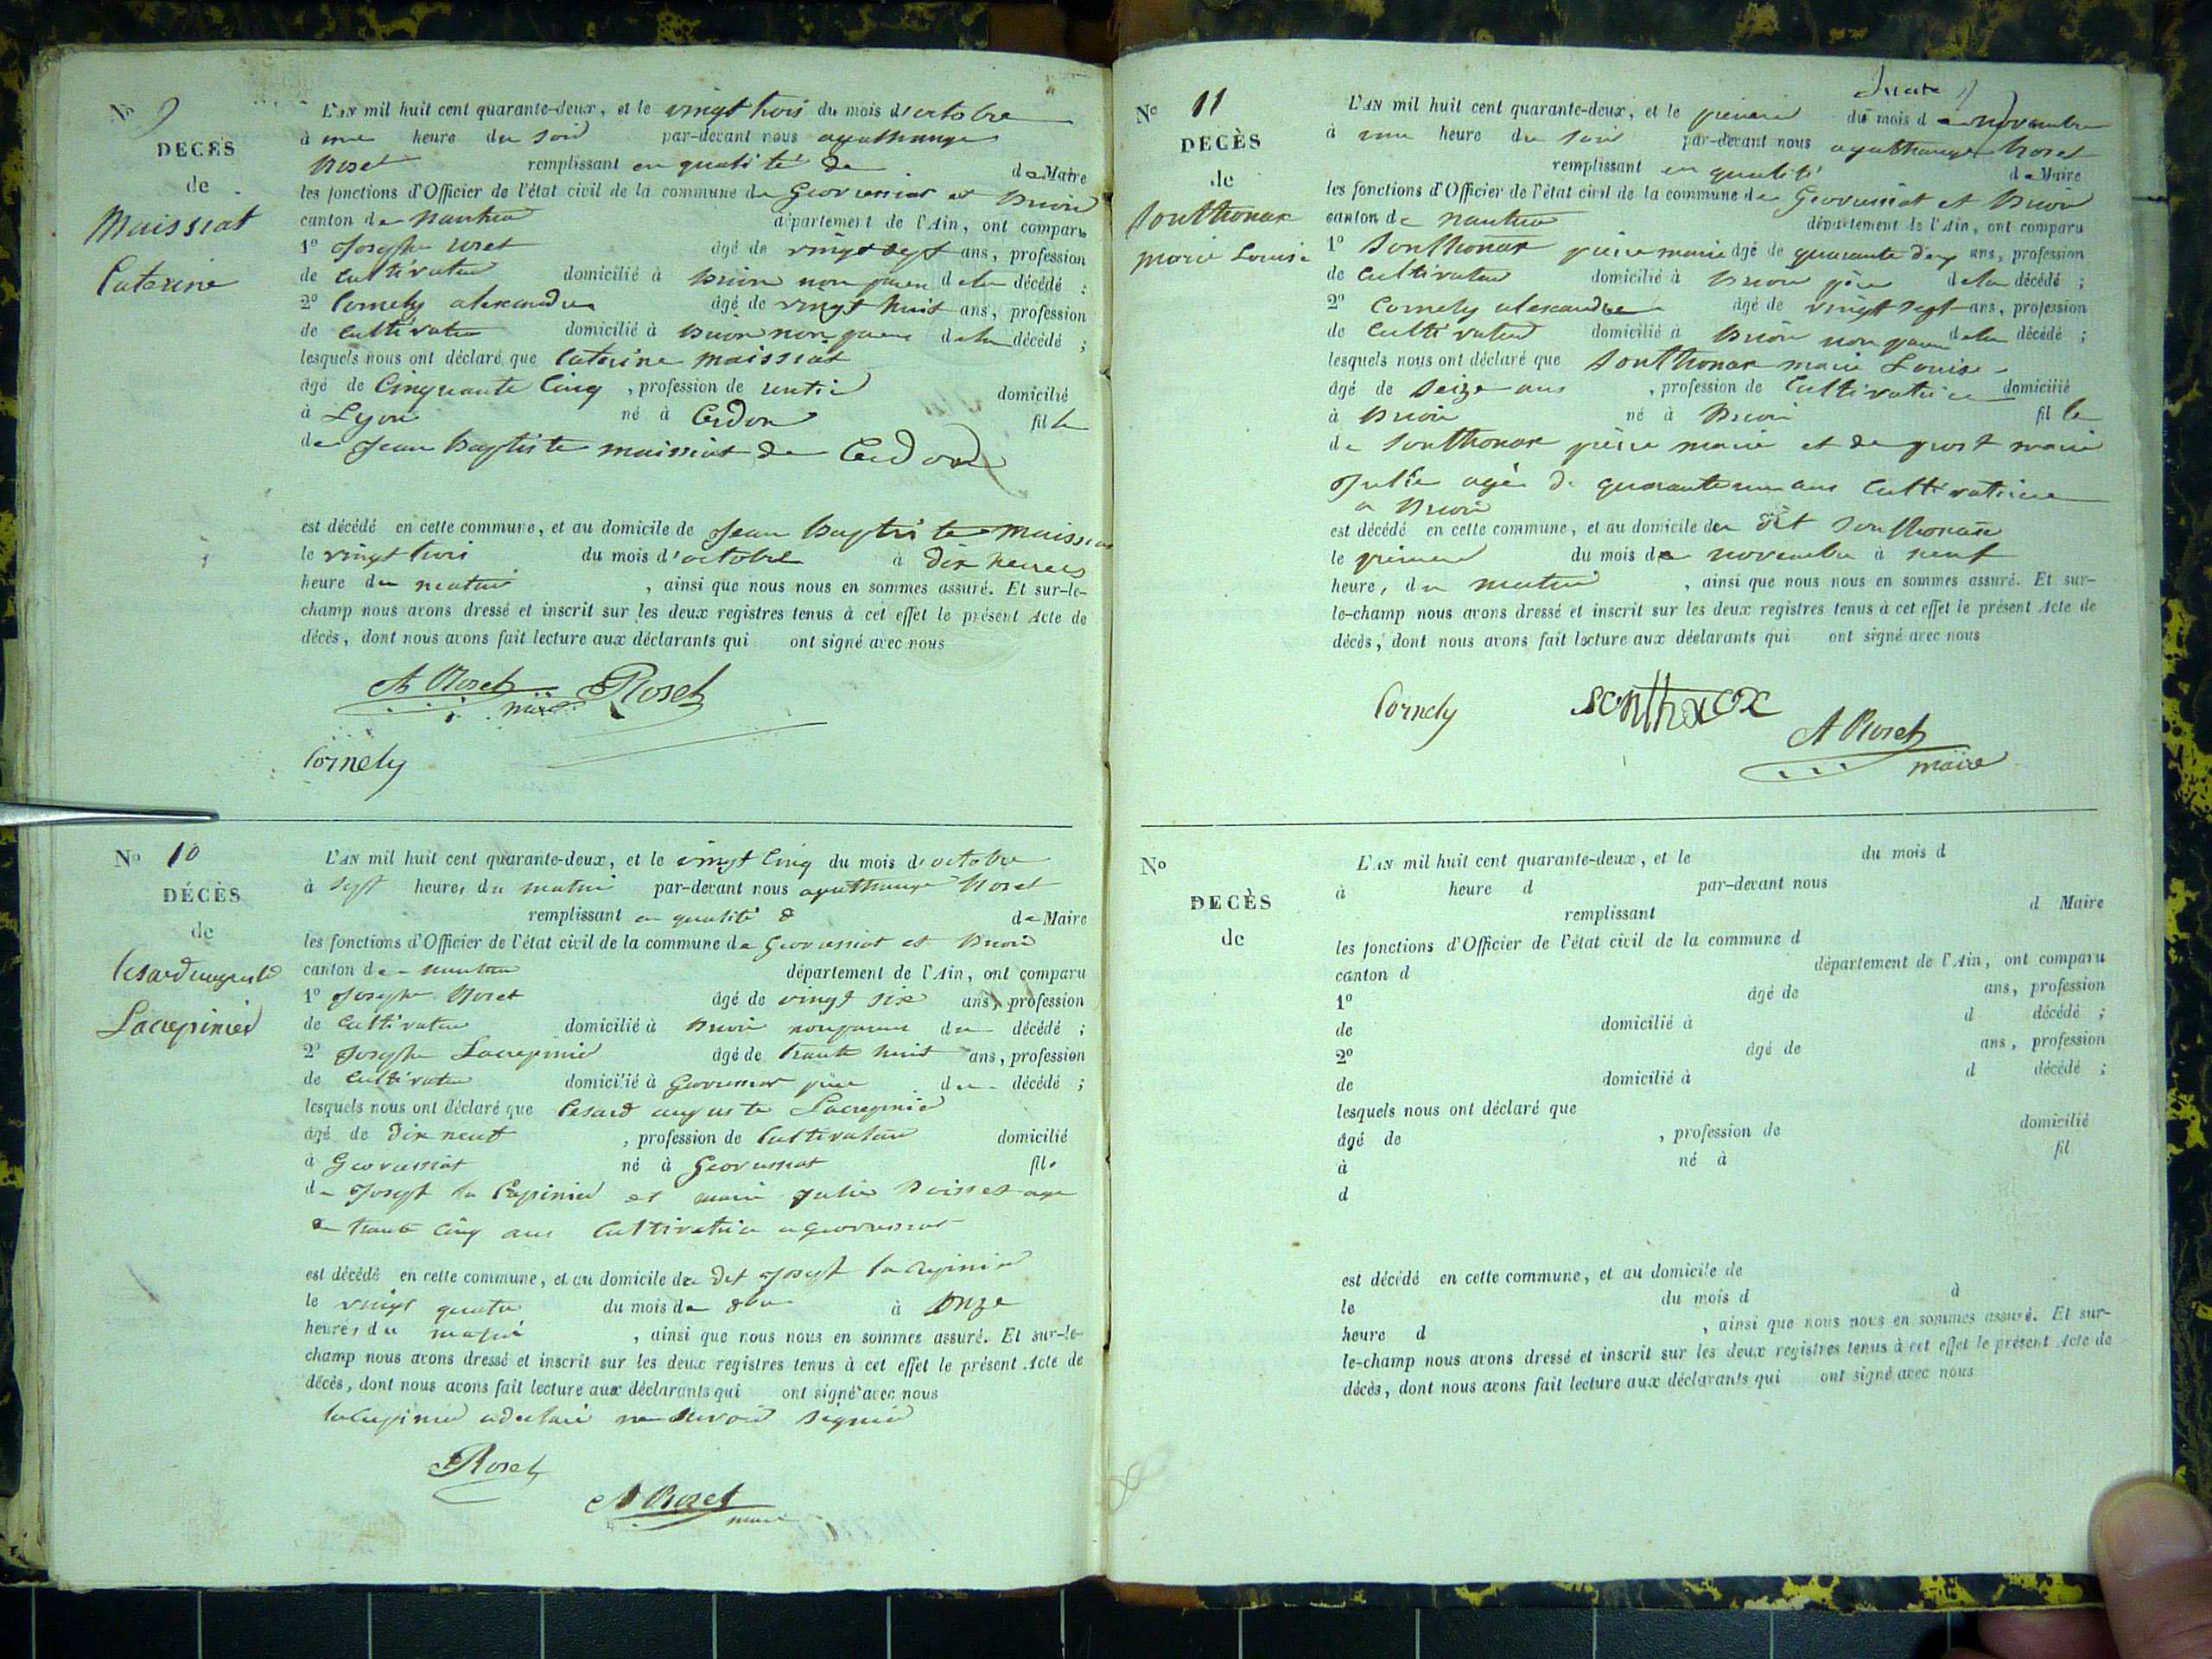 No 9
DECÈS
de
Maissiat
Caterine
L'AN mil huit cent quarante-deux, et le vingt trois du mois d'octobre
à une heure du soir par-devant nous agathange
Roset remplissant en qualité de de Maire
les fonctions d'Officier de l'état civil de la commune de Geovressiat et Brion
canton de nantua département de l'Ain, ont comparu
1o Joseph roset âgé de vingt sept ans, profession
de Cultivateur domicilié à Brion non paren de la décédé ;
2o Cornely alexandre âgé de vingt huit ans, profession
de Cultivateur domicilié à Brion non paren de la décédé ;
lesquels nous ont déclaré que Caterine Maissiat
âgé de Cinquante Cinq , profession de rentier domicilié
à Lyon né à Cerdon fil le
de Jean baptiste maissiat de Cerdon
est décédé en cette commune, et au domicile de Jean baptiste Maissiat
le vingt trois du mois d'octobre à dix heures
heure du matin , ainsi que nous nous en sommes assuré. Et sur-le-
champ nous avons dressé et inscrit sur les deux registres tenus à cet effet le présent Acte de
décès, dont nous avons fait lecture aux déclarants qui ont signé avec nous
A Roset maire Roset
Cornely
No 10
DÉCÈS
de
Cesard auguste
Lacrepinier
L'AN mil huit cent quarante-deux, et le vingt Cinq du mois d'octobre
à sept heures du matin par-devant nous agathange Roset
remplissant en qualité d de Maire
les fonctions d'Officier de l'état civil de la commune de Geovressiat et Brion
canton de nantua département de l'Ain, ont comparu
1o Joseph Roset âgé de vingt six ans, profession
de Cultivateur domicilié à Brion non paren du décédé ;
2o Joseph Lacrepinier âgé de trante huit ans, profession
de Cultivateur domicilié à Geovressiat père du décédé ;
lesquels nous ont déclaré que Cesard auguste Lacrepinier
âgé de dix neuf , profession de Cultivateur domicilié
à Geovressiat né à Geovressiat fils
de Joseph la Crepinier et marie Julie Boisset age
de trante Cinq ans Cultivatrice a Geovressiat
est décédé en cette commune, et au domicile de dit Joseph lacrepinier
le vingt quatre du mois de 8bre à onze
heures du matin , ainsi que nous nous en sommes assuré. Et sur-le-
champ nous avons dressé et inscrit sur les deux registres tenus à cet effet le présent Acte de
décès, dont nous avons fait lecture aux déclarants qui ont signé avec nous
lacrepinier a declaré ne savoir signer
Roset
A Roset maire
No 11
DECÈS
de
Sonthonax
marie Louise
L'AN mil huit cent quarante-deux, et le premier du mois de novembre
à une heure du soir par-devant nous agathange Roset
remplissant en qualité de Maire
les fonctions d'Officier de l'état civil de la commune de Geovressiat et Brion
canton de nantua département de l'Ain, ont comparu
1o Sonthonax pierre marie âgé de quarante deux ans, profession
de Cultivateur domicilié à Brion père de la décédé ;
2o Cornely alexandre âgé de vingt sept ans, profession
de Cultivateur domicilié à Brion non paren de la décédé ;
lesquels nous ont déclaré que Sonthonax marie Louise
âgé de seize ans , profession de Cultivatrice domicilié
à Brion né à Brion fil le
de Sonthonax pierre marie et de prost marie
Julie agée de quarante un ans Cultivatrice
a Brion
est décédé en cette commune, et au domicile de dit Sonthonax
le premier du mois de novembre à neuf
heure, du matin , ainsi que nous nous en sommes assuré. Et sur-
le-champ nous avons dressé et inscrit sur les deux registres tenus à cet effet le présent Acte de
décès, dont nous avons fait lecture aux déclarants qui ont signé avec nous
Cornely sonthonax
A Roset
maire
No
DECÈS
de
L'AN mil huit cent quarante-deux, et le du mois d
à heure d par-devant nous
remplissant d Maire
les fonctions d'Officier de l'état civil de la commune d
canton d département de l'Ain, ont comparu
1o âgé de ans, profession
de domicilié à d décédé ;
2o âgé de ans, profession
de domicilié à d décédé ;
lesquels nous ont déclaré que
âgé de , profession de domicilié
à né à fil
d
est décédé en cette commune, et au domicile de
le du mois d à
heure d , ainsi que nous nous en sommes assuré. Et sur-
le-champ nous avons dressé et inscrit sur les deux registres tenus à cet effet le présent Acte de
décès, dont nous avons fait lecture aux déclarants qui ont signé avec nous